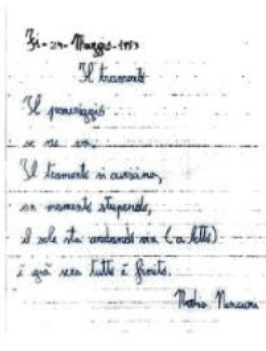 Fi-29-Maggio-1953
Il tramonto
Il pomeriggio
se ne va,
Il tramonto si avvicina,
un momento stupendo,
il sole sta andando via (a letto)
è già sera tutto è finito.